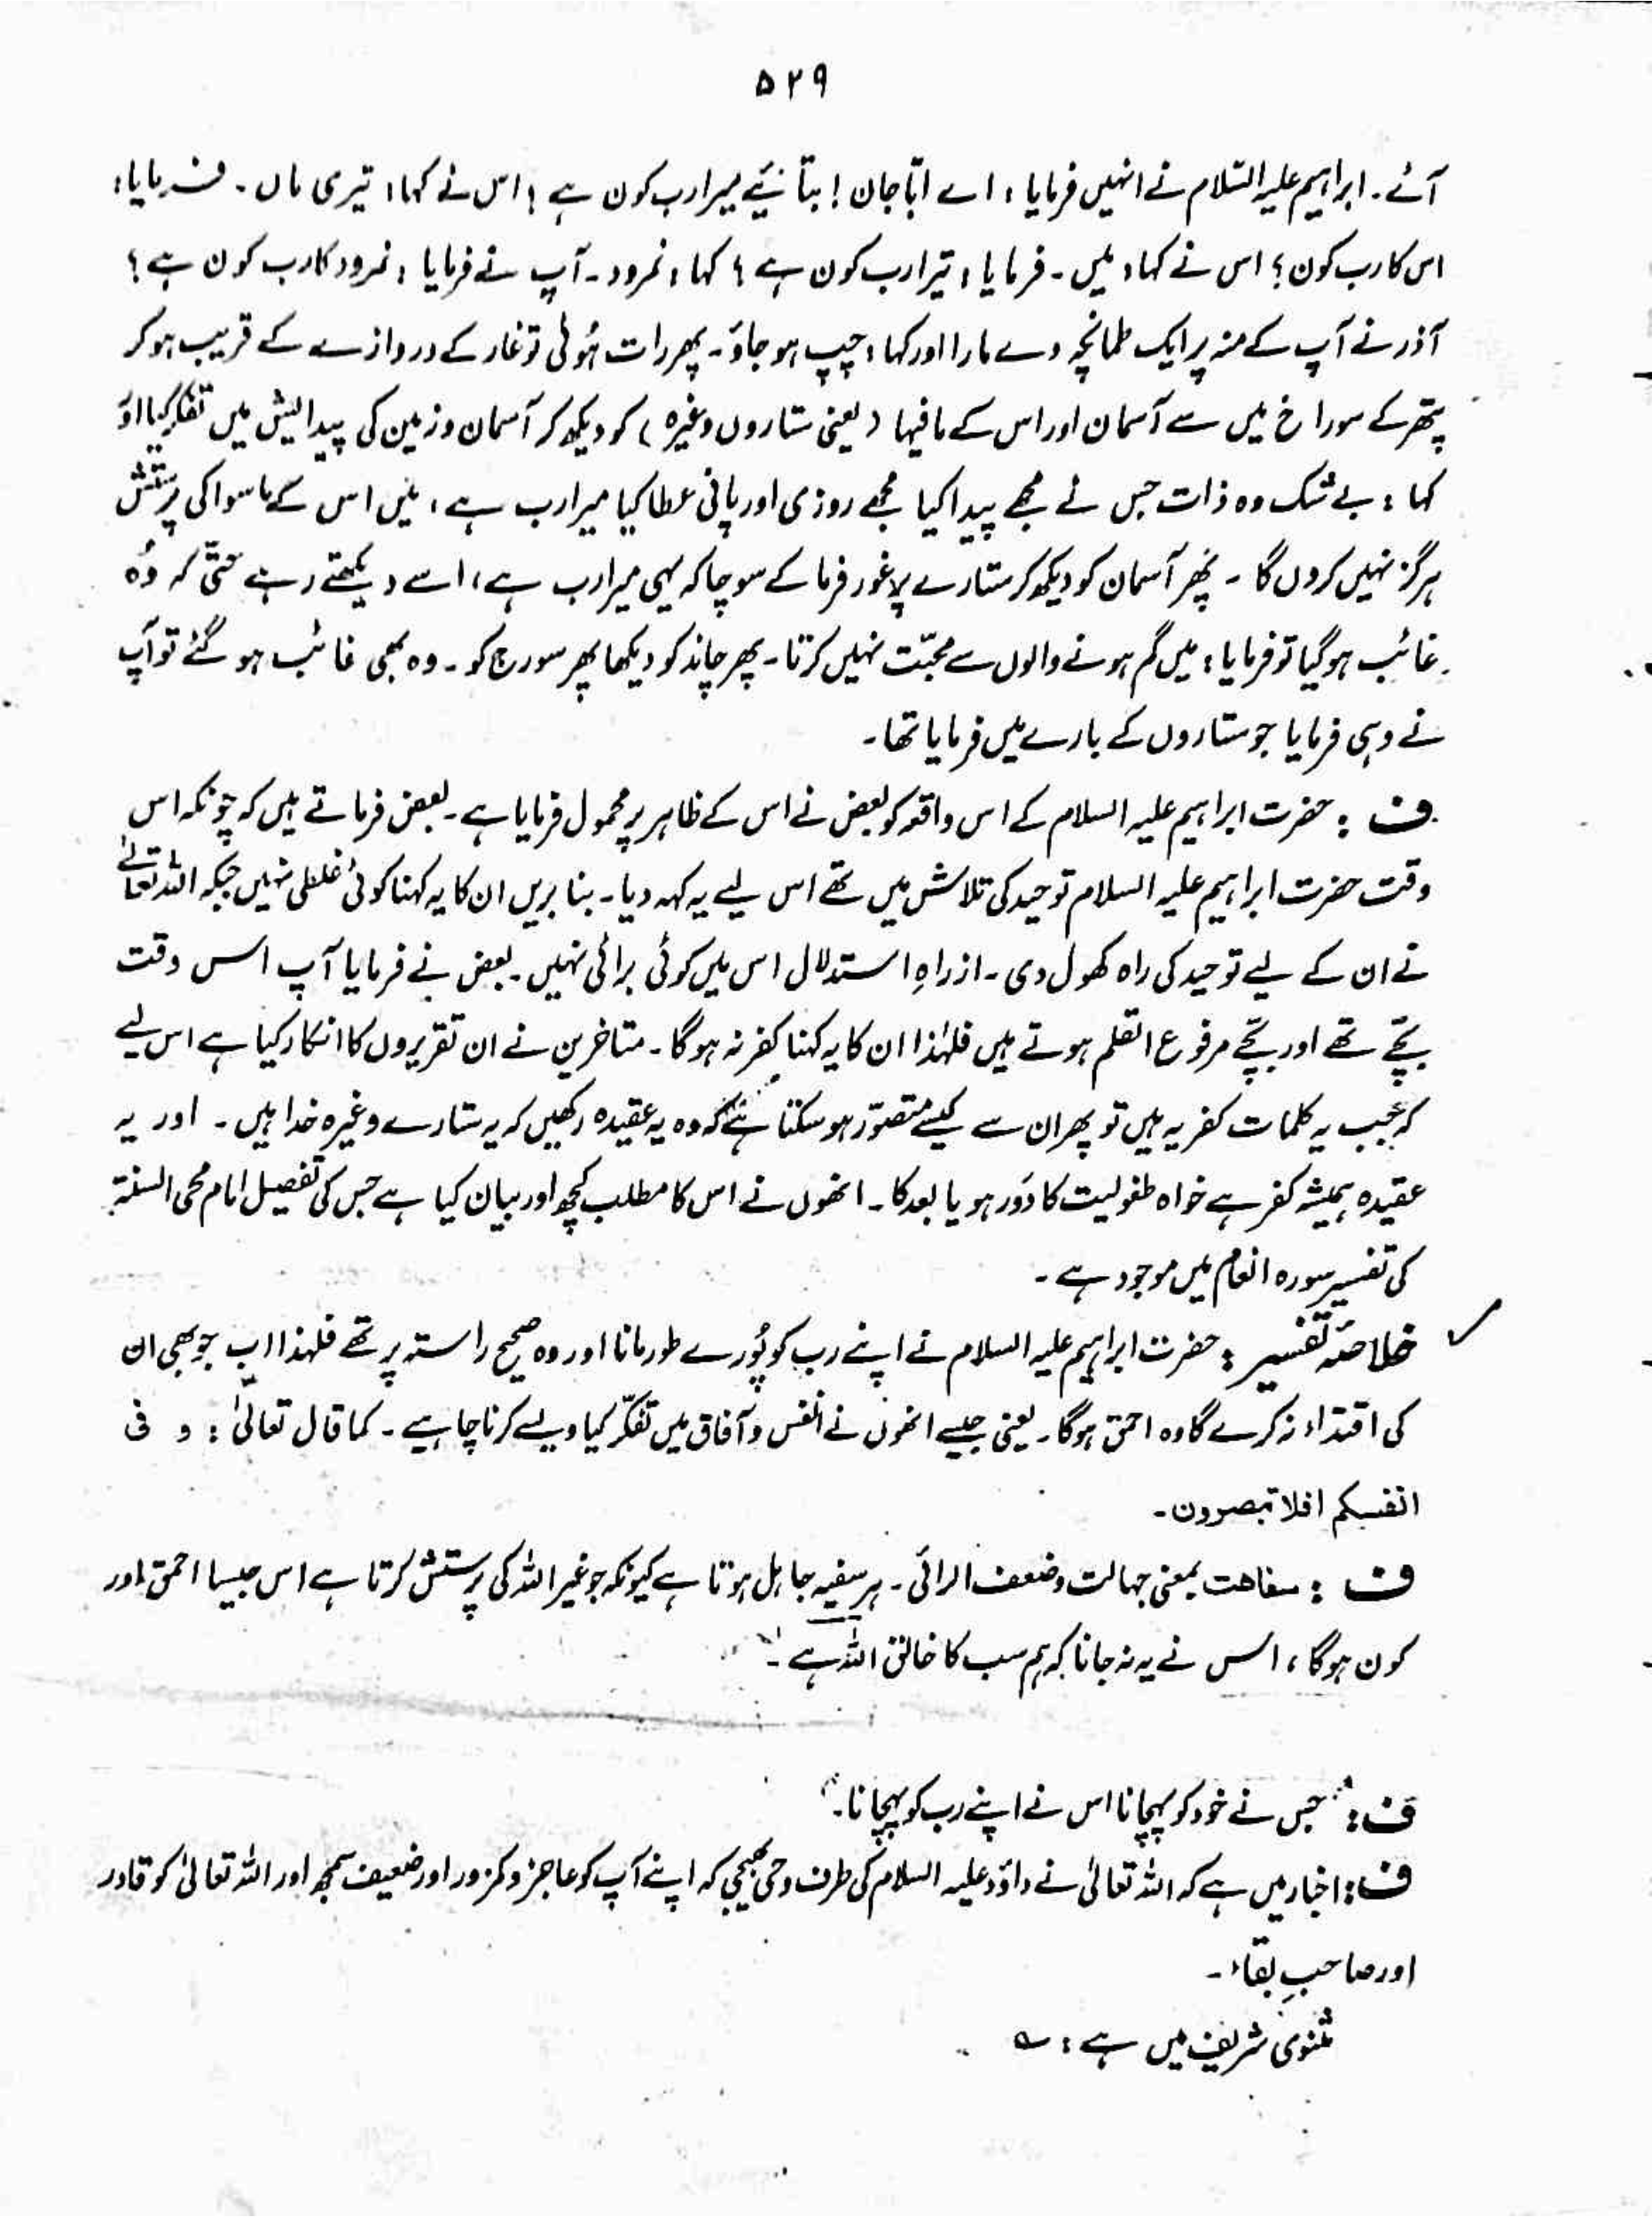 ۵۲۹
آئے۔ ابراہیم علیہ السّلام نے انھیں فرمایا: اے ابّا جان! بتائیے میرا رب کون ہے؟ اس نے کہا: تیری ماں۔ فرمایا:
اس کا رب کون؟ اس نے کہا: میں۔ فرمایا: تیرا رب کون ہے؟ کہا: نمرود۔ آپ نے فرمایا: نمرود کا رب کون ہے؟
آذر نے آپ کے منہ پر ایک طمانچہ دے مارا اور کہا: چپ ہو جاؤ۔ پھر رات ہُوئی تو غار کے دروازے کے قریب ہو کر
پتھر کے سوراخ میں سے آسمان اور اس کے مافیہا (یعنی ستاروں وغیرہ) کو دیکھ کر آسمان و زمین کی پیدایش میں تفکر کیا اور
کہا: بے شک وہ ذات جس نے مجھے پیدا کیا مجھے روزی اور پانی عطا کیا میرا رب ہے، میں اس کے ماسوا کی پرستش
ہرگز نہیں کروں گا۔ پھر آسمان کو دیکھ کر ستارے پر غور فرما کے سوچا کہ یہی میرا رب ہے، اسے دیکھتے رہے حتّٰی کہ وُہ
غائب ہو گیا تو فرمایا: میں گم ہونے والوں سے محبّت نہیں کرتا۔ پھر چاند کو دیکھا پھر سورج کو۔ وہ بھی غائب ہو گئے تو آپ
نے وہی فرمایا جو ستاروں کے بارے میں فرمایا تھا۔
ف : حضرت ابراہیم علیہ السلام کے اس واقعہ کو بعض نے اس کے ظاہر پر محمول فرمایا ہے۔ بعض فرماتے ہیں کہ چونکہ اس
وقت حضرت ابراہیم علیہ السلام توحید کی تلاش میں تھے اس لیے یہ کہہ دیا۔ بنا بریں ان کا یہ کہنا کوئی غلطی نہیں جبکہ اللہ تعالےٰ
نے ان کے لیے توحید کی راہ کھول دی۔ از راہِ استدلال اس میں کوئی برائی نہیں۔ بعض نے فرمایا آپ اس وقت
بچّے تھے اور بچّے مرفوع القلم ہوتے ہیں فلہٰذا ان کا یہ کہنا کفر نہ ہوگا۔ متاخرین نے ان تقریروں کا انکار کیا ہے اس لیے
کہ جب یہ کلمات کفریہ ہیں تو پھر ان سے کیسے متصوّر ہو سکتا ہے کہ وہ یہ عقیدہ رکھیں کہ یہ ستارے وغیرہ خدا ہیں۔ اور یہ
عقیدہ ہمیشہ کفر ہے خواہ طفولیت کا دَور ہو یا بعد کا۔ انھوں نے اس کا مطلب کچھ اور بیان کیا ہے جس کی تفصیل امام محی السنۃ
کی تفسیر سورہ انعام میں موجود ہے۔
خلاصۂ تفسیر : حضرت ابراہیم علیہ السلام نے اپنے رب کو پُورے طور مانا اور وہ صحیح راستہ پر تھے فلہذا اب جو بھی ان
کی اقتداء نہ کرے گا وہ احمق ہوگا۔ یعنی جیسے انھوں نے انفس و آفاق میں تفکّر کیا ویسے کرنا چاہیے۔ کما قال تعالیٰ: و فی
انفسکم افلا تبصرون۔
ف : سفاہت بمعنی جہالت و ضعف الرائی۔ ہر سفیہ جاہل ہوتا ہے کیونکہ جو غیر اللہ کی پرستش کرتا ہے اس جیسا احمق اور
کون ہوگا، اس نے یہ نہ جانا کہ ہم سب کا خالق اللہ ہے۔
ف : "جس نے خود کو پہچانا اس نے اپنے رب کو پہچانا۔"
ف : اخبار میں ہے کہ اللہ تعالیٰ نے داؤد علیہ السلام کی طرف وحی بھیجی کہ اپنے آپ کو عاجز و کمزور اور ضعیف سمجھ اور اللہ تعالیٰ کو قادر
اور صاحبِ بقاء۔
مثنوی شریف میں ہے : ؎